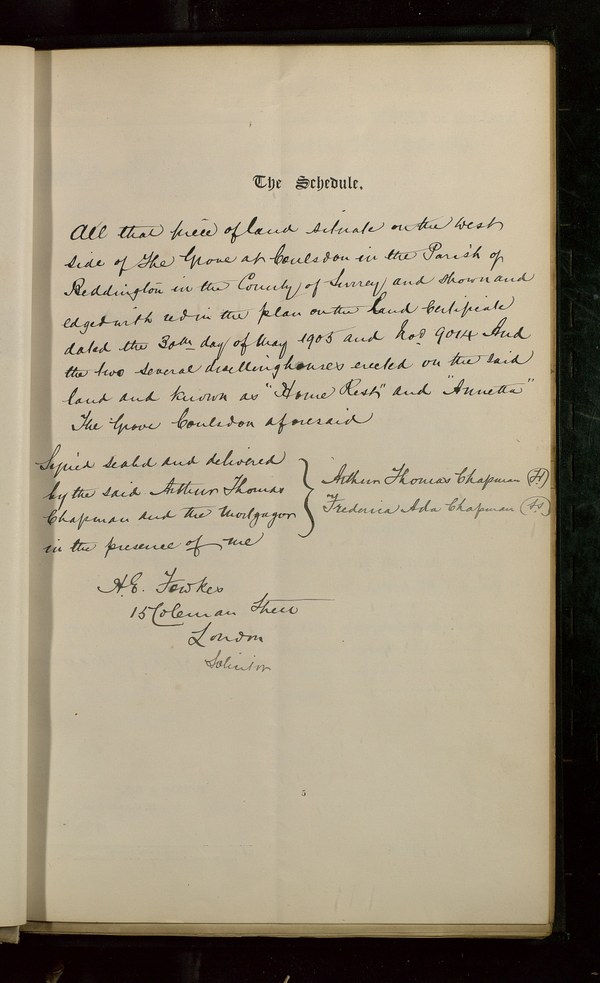 The Schedule.
All that piece of land situate on the West
side of The Grove at Coulsdon in the Parish of
Beddington in the County of Surrey and shown and
edged with red in the plan on the Land Certificate
dated the 30th day of May 1905 and No. 9014 And
the two several dwellinghouses erected on the said
land and known as "Home Rest" and "Annetta"
The Grove Coulsdon aforesaid
Signed sealed and delivered
by the said Arthur Thomas
Chapman and the Mortgagor
in the presence of me
Arthur Thomas Chapman
Frederica Ada Chapman
A.E. Fowkes
15 Coleman Street
London
Solicitor
5